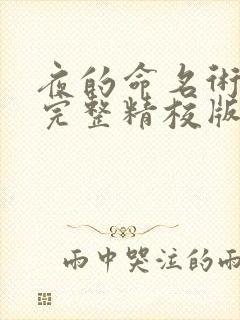 夜的命名術
完整精校版
雨中哭泣的雨